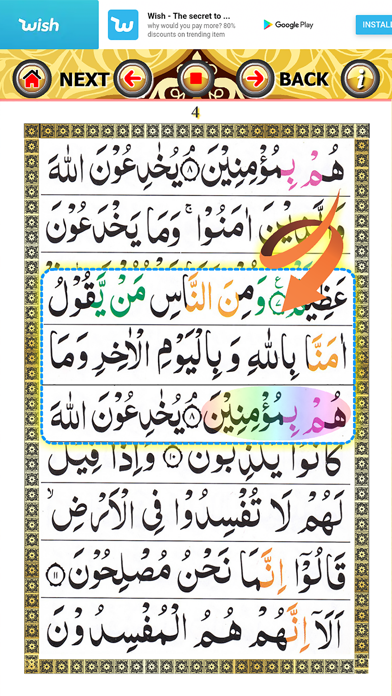 wish
Wish - The secret to ...
why would you pay more? 80%
discounts on trending item
Google Play
INSTALL
NEXT
BACK
i
4
هُمْ بِمُؤْمِنِيْنَ ۝٨ يُخٰدِعُوْنَ اللّٰهَ
وَالَّذِيْنَ اٰمَنُوْا ۚ وَمَا يَخْدَعُوْنَ
عَظِيْمٌ ۝٧ وَمِنَ النَّاسِ مَنْ يَّقُوْلُ
اٰمَنَّا بِاللّٰهِ وَ بِالْيَوْمِ الْاٰخِرِ وَمَا
هُمْ بِمُؤْمِنِيْنَ ۝٨ يُخٰدِعُوْنَ اللّٰهَ
كَانُوْا يَكْذِبُوْنَ ۝١٠ وَاِذَا قِيْلَ
لَهُمْ لَا تُفْسِدُوْا فِى الْاَرْضِ ۙ
قَالُوْٓا اِنَّمَا نَحْنُ مُصْلِحُوْنَ ۝١١
اَلَآ اِنَّهُمْ هُمُ الْمُفْسِدُوْنَ